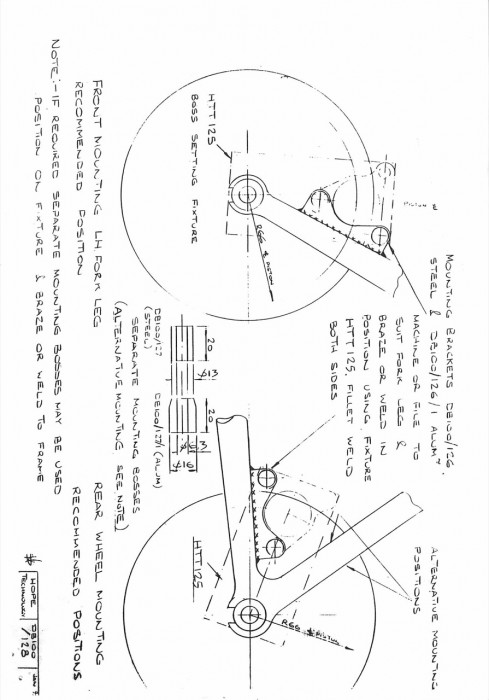 MOUNTING BRACKETS DB100/126.
STEEL & DB100/126/1 ALUMY
MACHINE OR FILE TO
SUIT FORK LEG &
BRAZE OR WELD IN
POSITION USING FIXTURE
HTT125. FILLET WELD
BOTH SIDES
ALTERNATIVE MOUNTING
POSITIONS
HTT125
BOSS SETTING FIXTURE
FRONT MOUNTING LH FORK LEG
RECOMMENDED POSITION
NOTE:- IF REQUIRED SEPARATE MOUNTING BOSSES MAY BE USED
POSITION ON FIXTURE & BRAZE OR WELD TO FRAME
20
ø13
20
3
ø16
DB100/127
(STEEL)
DB100/127/1 (ALUM)
SEPARATE MOUNTING BOSSES
(ALTERNATIVE MOUNTING SEE NOTE)
HTT125
REAR WHEEL MOUNTING
RECOMMENDED POSITIONS
HOPE
TECHNOLOGY
DB100
/128